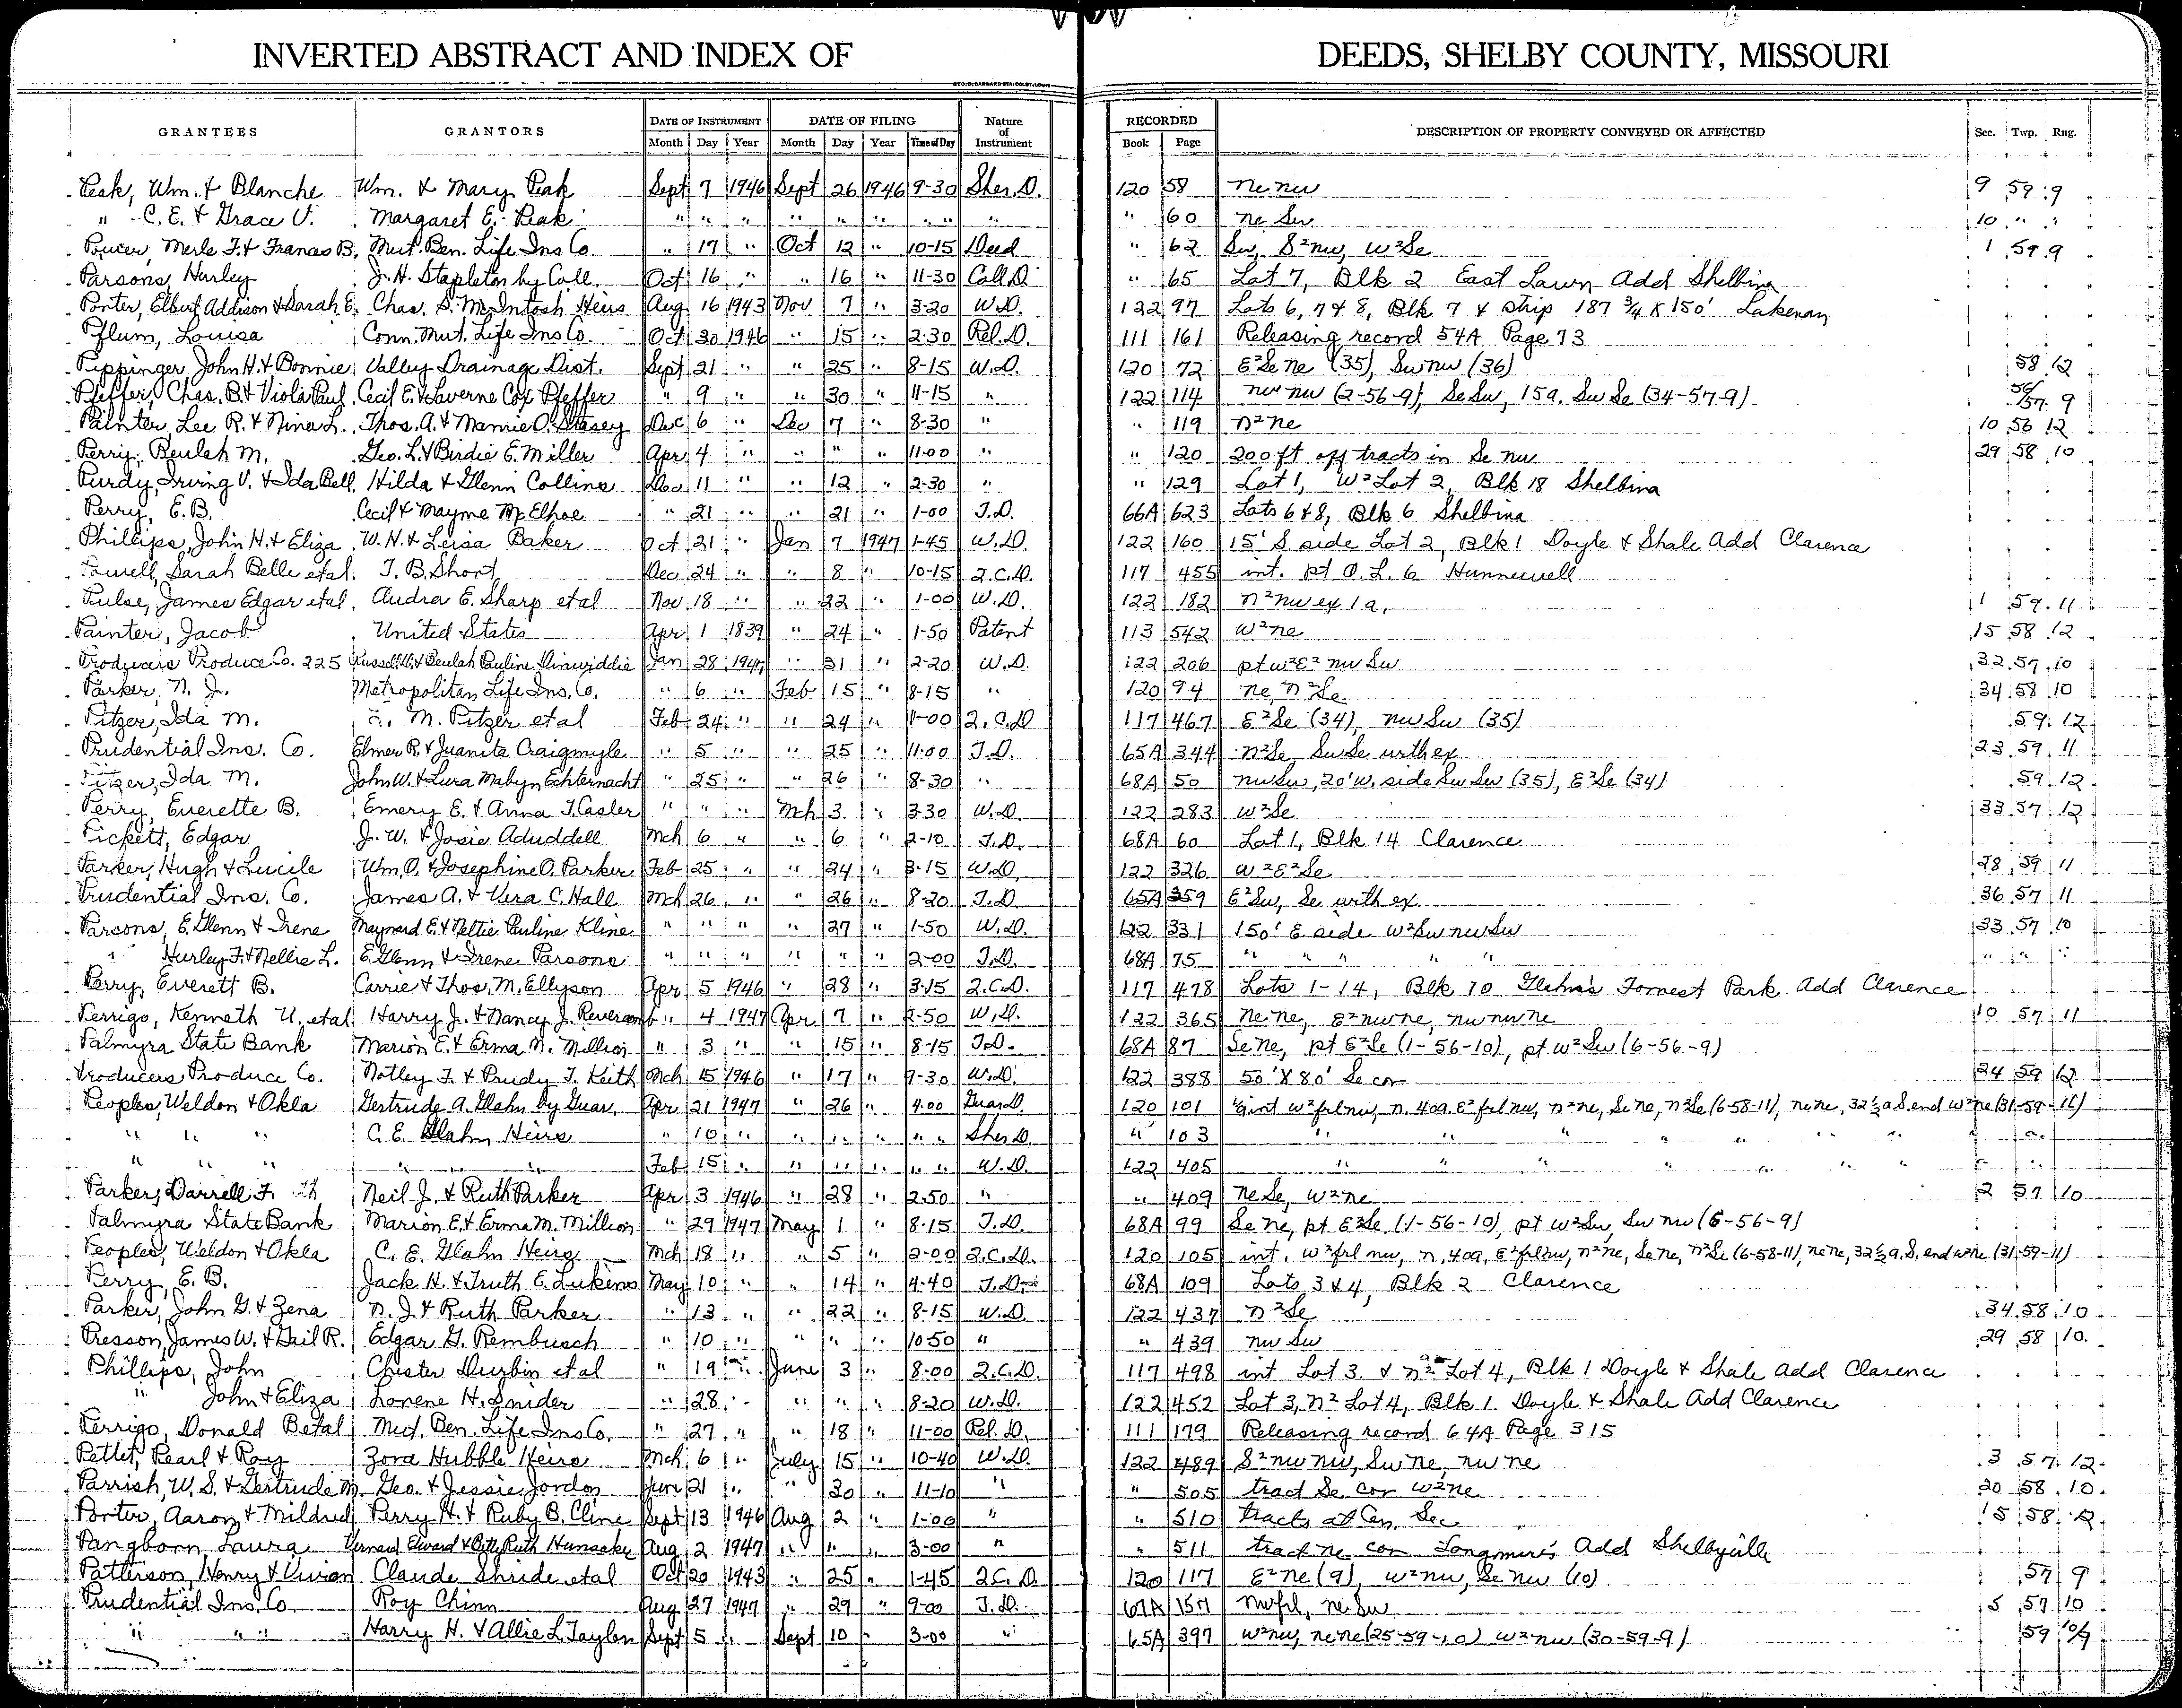 INVERTED ABSTRACT AND INDEX OF DEEDS, SHELBY COUNTY, MISSOURI
GRANTEES GRANTORS DATE OF INSTRUMENT DATE OF FILING Nature of Instrument RECORDED DESCRIPTION OF PROPERTY CONVEYED OR AFFECTED Sec. Twp. Rng.
Month Day Year Month Day Year Time of Day Book Page
Peak, Wm. & Blanche Wm. & Mary Peak Sept 7 1946 Sept 26 1946 9-30 Sher. D. 120 58 ne nw 9 59 9
" C. E. & Grace V. Margaret E. Peak " " " " " " " " " " 60 ne Sw 10 " "
Merle F. & Frances B. Mut. Ben. Life Ins Co. " 17 " Oct 12 " 10-15 Deed " 62 Sw, S²nw, w²Se 1 59 9
Parsons, Hurley J. H. Stapleton by Coll. Oct 16 " " 16 " 11-30 Coll. D. " 65 Lot 7, Blk 2 East Lawn Add Shelbina
Porter, Elbert Addison & Sarah E. Chas. S. McIntosh Heirs Aug 16 1943 Nov 7 " 3-20 W.D. 122 97 Lots 6, 7 & 8, Blk 7 & strip 187 3/4 x 150' Lakenan
Pflum, Louisa Conn. Mut. Life Ins Co. Oct 30 1946 " 15 " 2-30 Rel. D. 111 161 Releasing record 54A Page 73
Pippinger, John H. & Bonnie Valley Drainage Dist. Sept 21 " " 25 " 8-15 W.D. 120 72 E²Se ne (35), Sw nw (36) 58 12
Pfeffer, Chas. B. & Viola Paul Cecil E. & Laverne Cox Pfeffer " 9 " " 30 " 11-15 " 122 114 nw nw (2-56-9), Se Sw, 15a. Sw Se (34-57-9) 56/57 9
Painter, Lee R. & Nina L. Thos. A. & Mamie O. Stasey Dec 6 " Dec 7 " 8-30 " " 119 n² ne 10 56 12
Perry, Beulah M. Geo. L. & Birdie E. Miller Apr 4 " " " " 11-00 " " 120 200 ft off tracts in Se nw 29 58 10
Purdy, Irving V. & Ida Bell Hilda & Glenn Collins Dec 11 " " 12 " 2-30 " " 129 Lot 1, W² Lot 2, Blk 18 Shelbina
Perry, E. B. Cecil & Mayme McElhoe " 21 " " 21 " 1-00 T.D. 66A 623 Lots 6 & 8, Blk 6 Shelbina
Phillips, John H. & Eliza W. H. & Leisa Baker Oct 21 " Jan 7 1947 1-45 W.D. 122 160 15' S side Lot 2, Blk 1 Doyle & Shale Add Clarence
Powell, Sarah Belle et al. T. B. Short Dec 24 " " 8 " 10-15 2.C.D. 117 455 int. pt O. L. 6 Hunnewell
Pulse, James Edgar et al. Audra E. Sharp et al Nov 18 " " 22 " 1-00 W.D. 122 182 n²nw ex 1a. 1 59 11
Painter, Jacob United States Apr 1 1839 " 24 " 1-50 Patent 113 542 w²ne 15 58 12
Produce Co. 225 & Beulah Pauline Dinwiddie Jan 28 1947 " 31 " 2-20 W.D. 122 206 pt w²E² nw Sw 32 57 10
Parker, N. J. Metropolitan Life Ins. Co. " 6 " Feb 15 " 8-15 " 120 94 ne, n²Se 34 58 10
Pitzer, Ida M. M. Pitzer et al Feb 24 " " 24 " 1-00 2.C.D 117 467 E²Se (34), nw Sw (35) 59 12
Prudential Ins. Co. Elmer R. & Juanita Craigmyle " 5 " " 25 " 11-00 T.D. 65A 344 n²Se, Sw Se with ex 23 59 11
Pitzer, Ida M. John W. & Lura Mabyn Echternacht " 25 " " 26 " 8-30 " 68A 50 nw Sw, 20' w. side Sw Sw (35), E²Se (34) 59 12
Perry, Everette B. Emery E. & Anna T. Casler " " " Mch 3 " 3-30 W.D. 122 283 w²Se 33 57 12
Pickett, Edgar J. W. & Josie Aduddell Mch 6 " " 6 " 2-10 T.D. 68A 60 Lot 1, Blk 14 Clarence
Parker, Hugh & Lucile Wm. O. & Josephine O. Parker Feb 25 " " 24 " 3-15 W.D. 122 326 w²E²Se 28 59 11
Prudential Ins. Co. James A. & Vera C. Hall Mch 26 " " 26 " 8-20 T.D. 65A 359 E²Sw, Se with ex 36 57 11
Parsons, E. Glenn & Irene Maynard E. & Nettie Pauline Kline " " " " 27 " 1-50 W.D. 122 331 150' E. side w²Sw nw Sw 33 57 10
" Hurley F. & Nellie L. E. Glenn & Irene Parsons " " " " " " 2-00 T.D. 68A 75 " " " " " " " "
Perry, Everett B. Carrie & Thos. M. Ellyson Apr 5 1946 " 28 " 3-15 2.C.D. 117 478 Lots 1-14, Blk 10 Park Add Clarence
Perrigo, Kenneth U. et al Harry J. & Nancy J. " 4 1947 Apr 7 " 2-50 W.D. 122 365 ne ne, E²nw ne, nw nw ne 10 57 11
Palmyra State Bank Marion E. & Erma M. Million " 3 " " 15 " 8-15 T.D. 68A 87 Se ne, pt E²Se (1-56-10), pt w²Sw (6-56-9)
Producers Produce Co. Notley F. & Prudy T. Keith Mch 15 1946 " 17 " 9-30 W.D. 122 388 50' X 80' Se cor 24 59 12
Peoples, Weldon & Okla Gertrude A. Glahn by Guar. Apr 21 1947 " 26 " 4-00 Guar D. 120 101 int w² frl nw, n. 40a. E² frl nw, n²ne, Se ne, n²Se (6-58-11), ne ne, 32½ a S. end w²ne (31-59-11)
" " " C. E. Glahn Heirs " 10 " " " " " " Sher D. " 103 " " " " " " " "
" " " " " " Feb 15 " " " " " " W.D. 122 405 " " " " " " "
Parker, Darrell F. Neil J. & Ruth Parker Apr 3 1946 " 28 " 2-50 " " 409 ne Se, w²ne 2 57 10
Palmyra State Bank Marion E. & Erma M. Million " 29 1947 May 1 " 8-15 T.D. 68A 99 Se ne, pt E²Se (1-56-10), pt w²Sw, Sw nw (6-56-9)
Peoples, Weldon & Okla C. E. Glahn Heirs Mch 18 " " 5 " 2-00 2.C.D. 120 105 int. w² frl nw, n, 40a, E² frl nw, n²ne, Se ne, n²Se (6-58-11), ne ne, 32½ a. S. end w²ne (31-59-11)
Perry, E. B. Jack H. & Truth E. Lukens May 10 " " 14 " 4-40 T.D. 68A 109 Lots 3 & 4, Blk 2 Clarence
Parker, John G. & Zena N. J. & Ruth Parker " 13 " " 22 " 8-15 W.D. 122 437 n²Se 34 58 10
Presson, James W. & Gail R. Edgar G. Rembusch " 10 " " " " 10-50 " " 439 nw Sw 29 58 10
Phillips, John Chester Durbin et al " 19 " June 3 " 8-00 2.C.D. 117 498 int Lot 3 & n² Lot 4, Blk 1 Doyle & Shale Add Clarence
" John & Eliza Lorene H. Snider " 28 " " " " 8-20 W.D. 122 452 Lot 3, n² Lot 4, Blk 1 Doyle & Shale Add Clarence
Perrigo, Donald B et al Mut. Ben. Life Ins Co. " 27 " " 18 " 11-00 Rel. D. 111 179 Releasing record 64A Page 315
Pettet, Pearl & Roy Zora Hubble Heirs Mch 6 " July 15 " 10-40 W.D. 122 489 S²nw nw, Sw ne, nw ne 3 57 12
Parrish, W. S. & Gertrude M. Geo. & Jessie Jordon Jun 21 " " 30 " 11-10 " " 505 tract Se cor w²ne 20 58 10
Porter, Aaron & Mildred Perry H. & Ruby B. Cline Sept 13 1946 Aug 2 " 1-00 " " 510 tracts at Cen. Sec. 15 58 12
Pangborn, Laura Vernard Elward & Betty Ruth Hunsaker Aug 2 1947 " " " 3-00 " " 511 tract ne cor Longmire's Add Shelbyville
Patterson, Henry & Vivian Claude Shride et al Oct 20 1943 " 25 " 1-45 2C.D 120 117 E²ne (9), w²nw, Se nw (10) 57 9
Prudential Ins. Co. Roy Chinn Aug 27 1947 " 29 " 9-00 T.D. 67A 157 nw frl, ne Sw 5 57 10
" " " Harry H. & Allie L. Taylor Sept 5 " Sept 10 " 3-00 " 65A 397 w²nw, ne ne (25-59-10) w²nw (30-59-9) 59 10/9